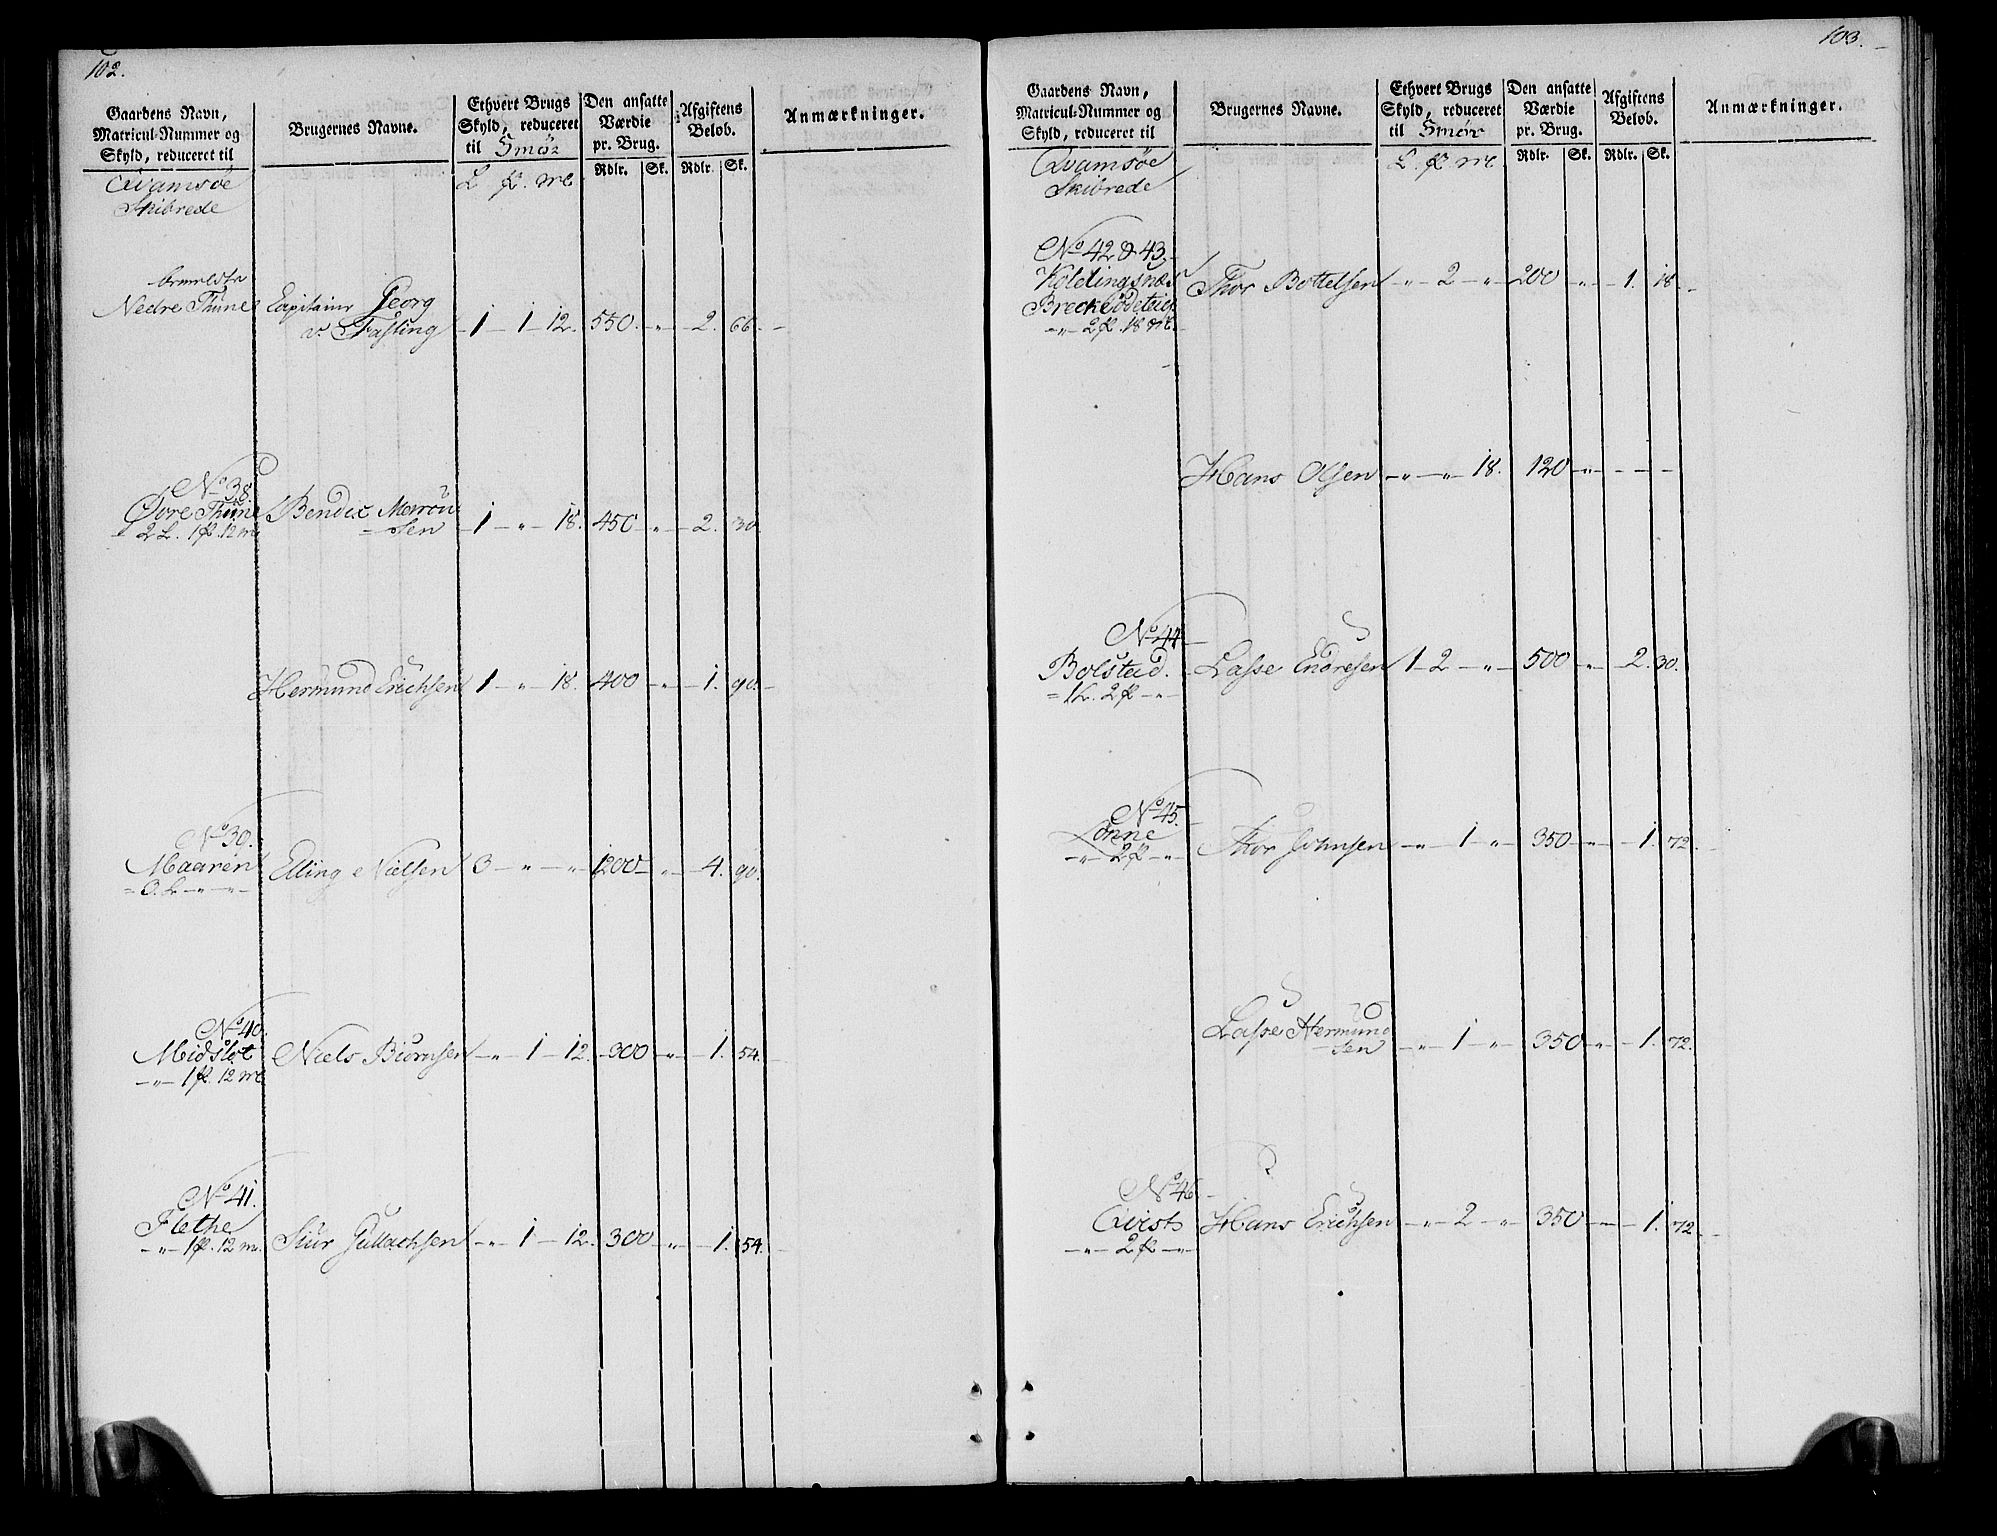 102.
Gaardens Navn,
Matricul-Nummer og
Skyld, reduceret til
Brugernes Navne.
Ethvert Brugs
Skyld, reduceret
til Smör
Den ansatte
Værdie
pr. Brug.
Afgiftens
Beløb.
Anmærkninger.
Rdlr. Sk. Rdlr. Sk.
Qvamsøe
Skibrede
L. f. mk
Nedre Thune
Capitaine Georg
v. Fasting 1 - 1 - 12. 550. - " - 2. 66. -
No 38.
Øvre Thune
2 L. 1 f. 12 mk
Bendix
sen 1 - " - 18. 450 - " - 2. 30
Hermund Erichsen 1 - " - 18. 400 - " - 1. 90. -
No 39.
Maaren
= 3. L - " - " -
Elling Nielsen 3 - " - " - 1200 - " - 4. 90.
No 40.
Midslot
- " - 1 f. 12 mk
Niels Biørnsen - " - 1 - 12. - 300 - " - 1. 54. -
No 41.
Flethe
- " - 1 f. 12 m.
Siur Gullachsen - " - 1 - 12. - 300 - " - 1. 54. -
103.
Gaardens Navn,
Matricul-Nummer og
Skyld, reduceret til
Brugernes Navne.
Ethvert Brugs
Skyld, reduceret
til Smör
Den ansatte
Værdie
pr. Brug.
Afgiftens
Beløb.
Anmærkninger.
Rdlr. Sk. Rdlr. Sk.
Qvamsøe
Skibrede
L. f. mk
No 42 & 43.
Holdingsnæs
Breckeödeteig
- " - 2 f. 18 mk.
Thor Bottelsen - " - 2 - " - 200 - " - 1. 18. -
Hans Olsen - " - " - 18. 120 - " - - -
No 44
Bolstad.
= 1 L. 2 f - " -
Lasse Endresen 1 - 2 - " - 500 - " - 2. 30.
No 45.
Lönne
- " - 2 f - " -
Thor Johnsen - " - 1 - " - 350 - " - 1. 72.
Lasse Hermund
sen - " - 1 - " - 350 - " - 1. 72.
No 46
Qvist
- " - 2 f - " -
Hans Erichsen - " - 2 - " - 350 - - 1. 72 -